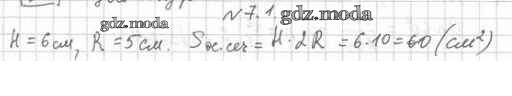 N 7.1. gdz.moda
gdz.moda
H = 6 см, R = 5 см. Sос.сеч = H · 2R = 6·10 = 60 (см²)